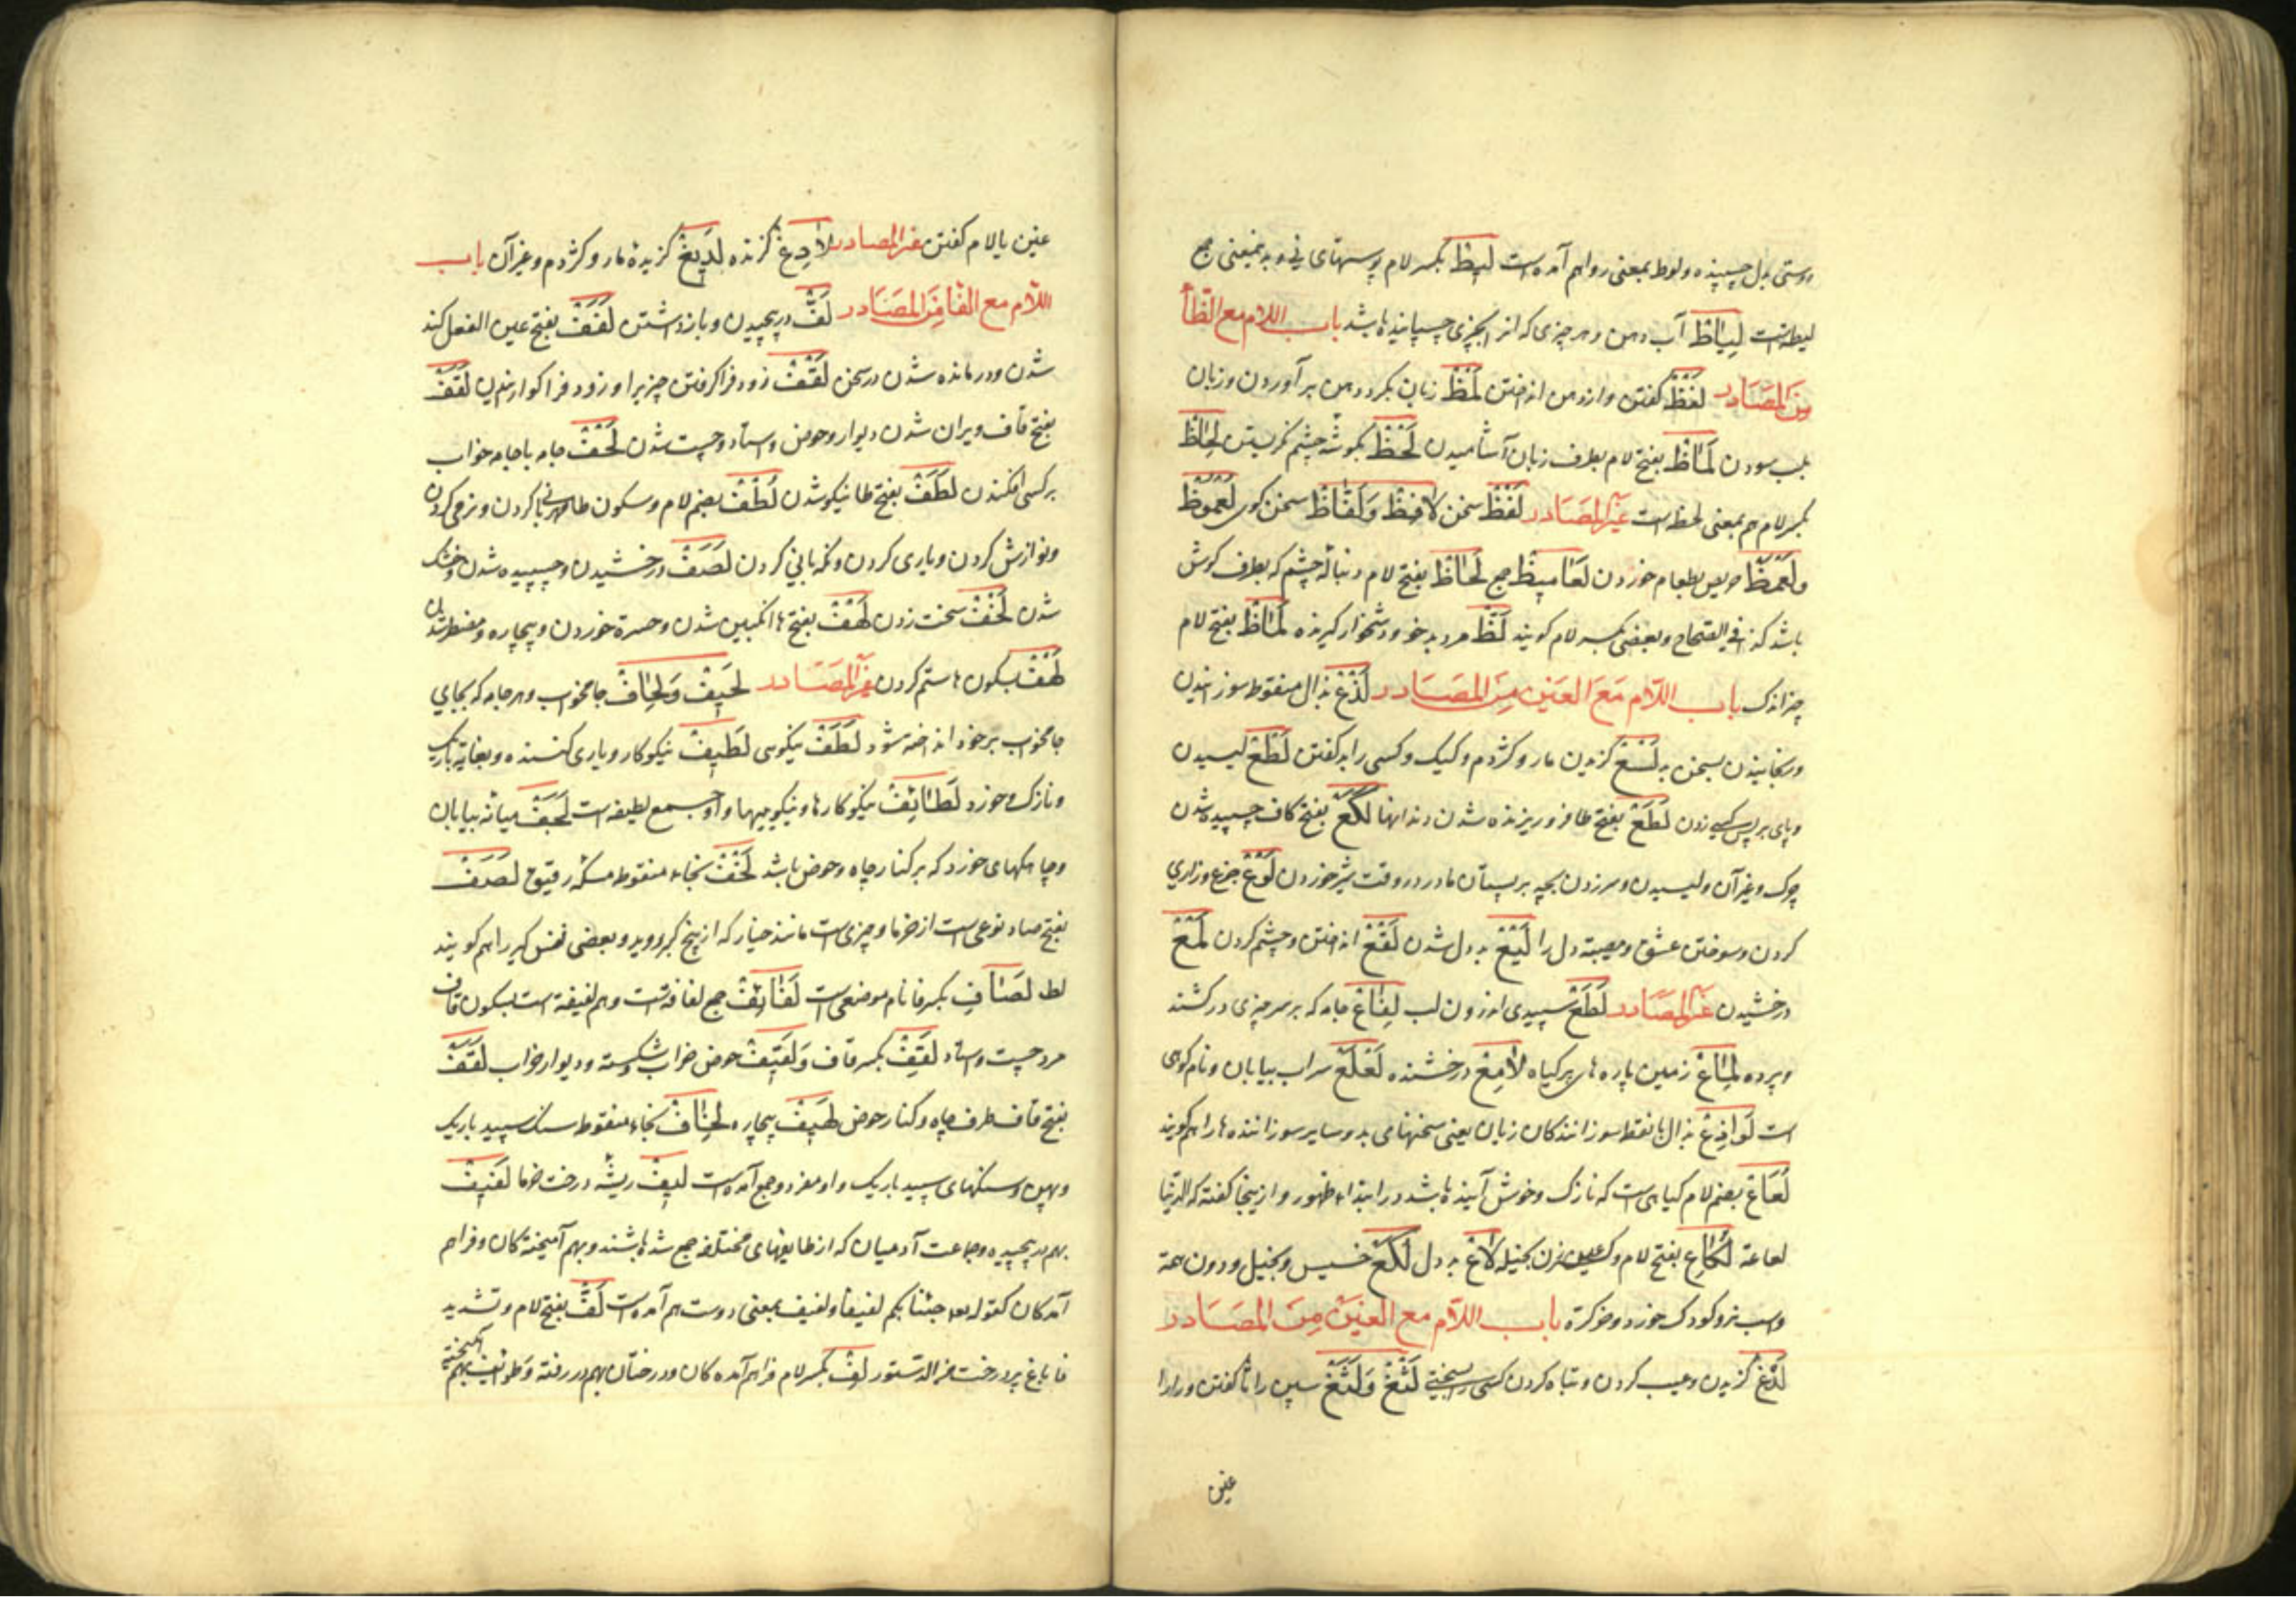 دوستی بدل چسپنده ولوط بمعنی رواهم آمده است لیط بکسر لام پوستهای نی و به بمعنی جمع
لیطه است لیاط آب دهن و هر چیزی که از آن چیزی چسپانیده باشد باب اللام مع الظا
من المصادر لفظ کفتن و از دهن انداختن لمظ زبان بکرد دهن بر آوردن و زبان
بلب سودن لماظ بفتح لام بطرف زبان آشامیدن لحظ بکوشه چشم نکریستن لحاظ
بکسر لام هم بمعنی لحظ است غیر المصادر لفظ سخن لافظ ولفاظ سخن کوی لعموظ
ولعمظ حریص بطعام خوردن لعامیظ جمع لحاظ بفتح لام دنباله چشم که بطرف کوش
باشد کذا فی الصحاح و بعضی بکسر لام کویند لظ مرد بدخو و دشخوار کیرنده لماظ بفتح لام
چیز اندک باب اللام مع العین من المصادر لذع بذال منقوط سوزانیدن
ورنجانیدن بسخن بد لسع کزیدن مار و کژدم و کیک و کسی را بد کفتن لطع لیسیدن
وپای بر پس کسی زدن لطع بفتح طا فرو ریزنده شدن دندانها لکع بفتح کاف چسپیده شدن
چرک و غیر آن ولیسیدن و سر زدن بچه بر پستان مادر در وقت شیر خوردن لوع جزع و زاری
کردن و سوختن عشق و مصیبة دل را لیع بد دل شدن لقع انداختن و چشم کردن لمع
درخشیدن غیر المصادر لطع سپیدی اندرون لب لفاع جامه که بر سر چیزی درکشند
وپرده لماع زمین پاره های پر کیاه لامع درخشنده لعلع سراب بیابان و نام کوهی
است لواذع بذال بانقطه سوزانندکان زبان یعنی سخنهای بد و سایر سوزاننده ها را هم کویند
لعاع بضم لام کیاهی است که نازک و خوش آینده باشد در ابتداء ظهور و ازینجا کفته که الدنیا
لعاعة لکاع بفتح لام و کسر عین زن بخیله لاع بد دل لکع خسیس و بخیل و دون همة
واسب نر و کودک خورد و خرکره باب اللام مع الغین من المصادر
لدغ کزیدن و عیب کردن و تباه کردن کسی را بسخنی لثغ ولثغ سین را ثا کفتن و را را
غین
غین یا لام کفتن غیر المصادر لادغ کزنده لدیغ کزیده مار و کژدم و غیر آن باب
اللام مع الفا من المصادر لف درپیچیدن و بازداشتن لفف بفتح عین الفعل کند
شدن و درمانده شدن در سخن لقف زود فرا کرفتن چیزیرا و زود فرا کواریدن لقف
بفتح قاف ویران شدن دیوار و حوض و استاد و چست شدن لحف جامه یا جامه خواب
بر کسی افکندن لطف بفتح طا نیکو شدن لطف بضم لام و سکون طا مهربانی کردن و نرمی کردن
ونوازش کردن و یاری کردن و نکهبانی کردن لصف درخشیدن و چسپیده شدن و خشک
شدن لخف سخت زدن لهف بفتح ها انکبین شدن و حسرة خوردن و بیچاره و مضطر شدن
لهف بسکون ها ستم کردن غیر المصادر لحیف ولحاف جامخواب و هر جامه که بجای
جامخواب بر خود انداخته شود لطف نیکویی لطیف نیکوکار و یاری کننده و بغایة باریک
ونازک و خورد لطائف نیکوکارها و نیکوییها و او جمع لطیفه است لجف میانه بیابان
وچاهکهای خورد که بر کنار چاه و حوض باشد لخف بخاء منقوط مسکه رقیق لصف
بفتح صاد نوعی است از خرما و چیزی است مانند خیار که از بیخ کبر روید و بعضی نفس کبر را هم کویند
لط لصاف بکسر فا نام موضعی است لفائف جمع لفافه است و هم لفیفه است لقف بسکون قاف
مرد چست و استاد لقف بکسر قاف ولقیف حوض خراب شکسته و دیوار خراب لقف
بفتح قاف طرف چاه و کنار حوض لهیف بیچاره لخاف بخاء منقوط سنک سپید باریک
وپهن و سنکهای سپید باریک و او مفرد و جمع آمده است لیف ریشه درخت خرما لفیف
بهم درپیچیده و جماعت آدمیان که از طایفهای مختلفه جمع شده باشند و بهم آمیخته کان و فراهم
آمدکان کقوله تعه جئنا بکم لفیفا ولفیف بمعنی دوست هم آمده است لف بفتح لام و تشدید
فا باغ پر درخت من الدستور لف بکسر لام فراهم آمده کان و درختان بهم در رفته و طوائف بهم آمیخته